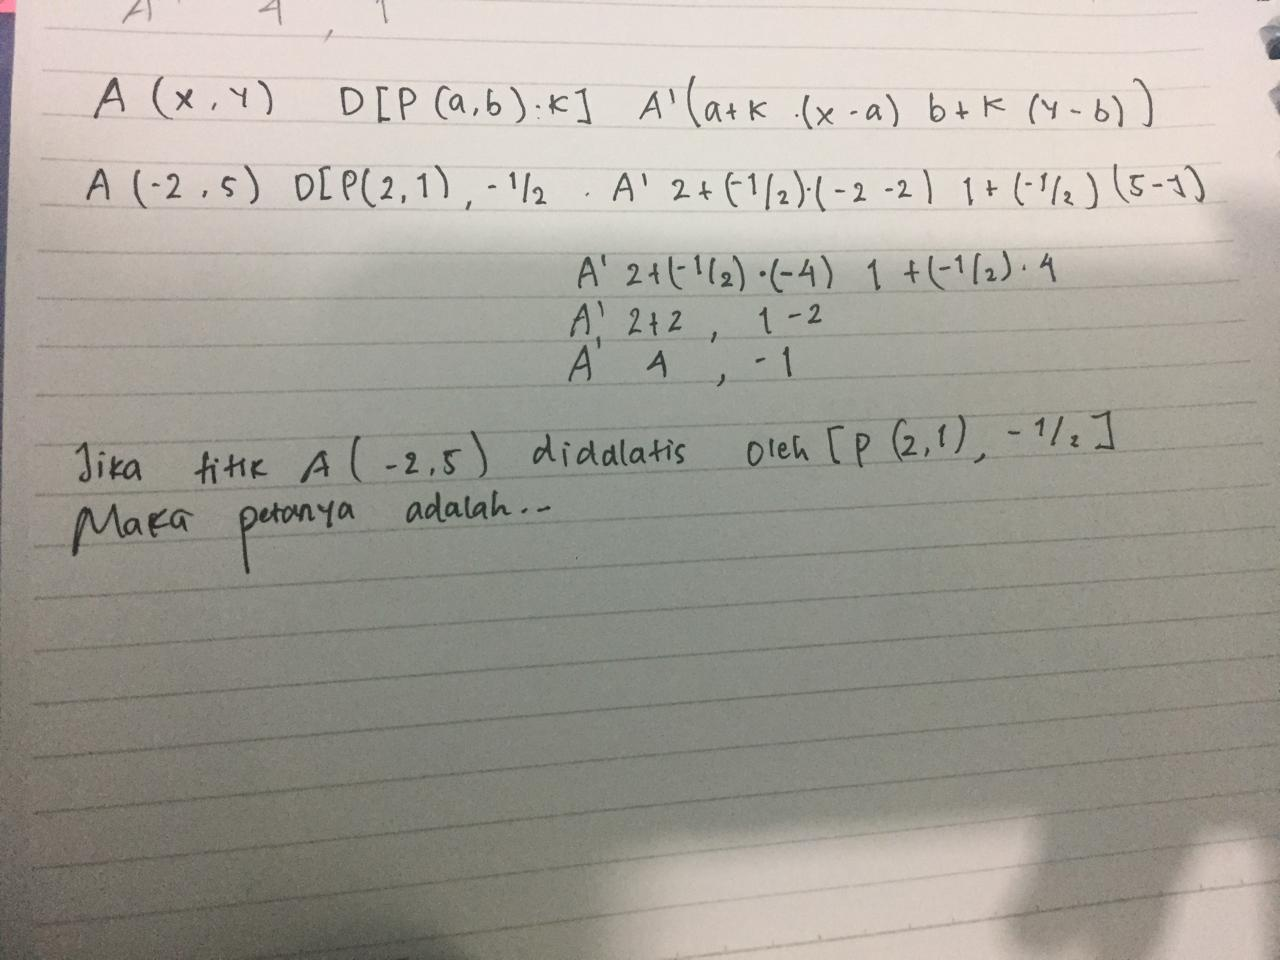 A' 4 , 1
A (x, y) D[P (a,b).k] A'(a+k .(x-a) b+k (y-b))
A (-2,5) D[P(2,1), -1/2 . A' 2+(-1/2).(-2-2) 1+(-1/2)(5-1)
A' 2+(-1/2).(-4) 1+(-1/2).4
A' 2+2 , 1-2
A' 4 , -1
Jika titik A(-2,5) didalatis oleh [P (2,1), -1/2]
Maka petanya adalah...